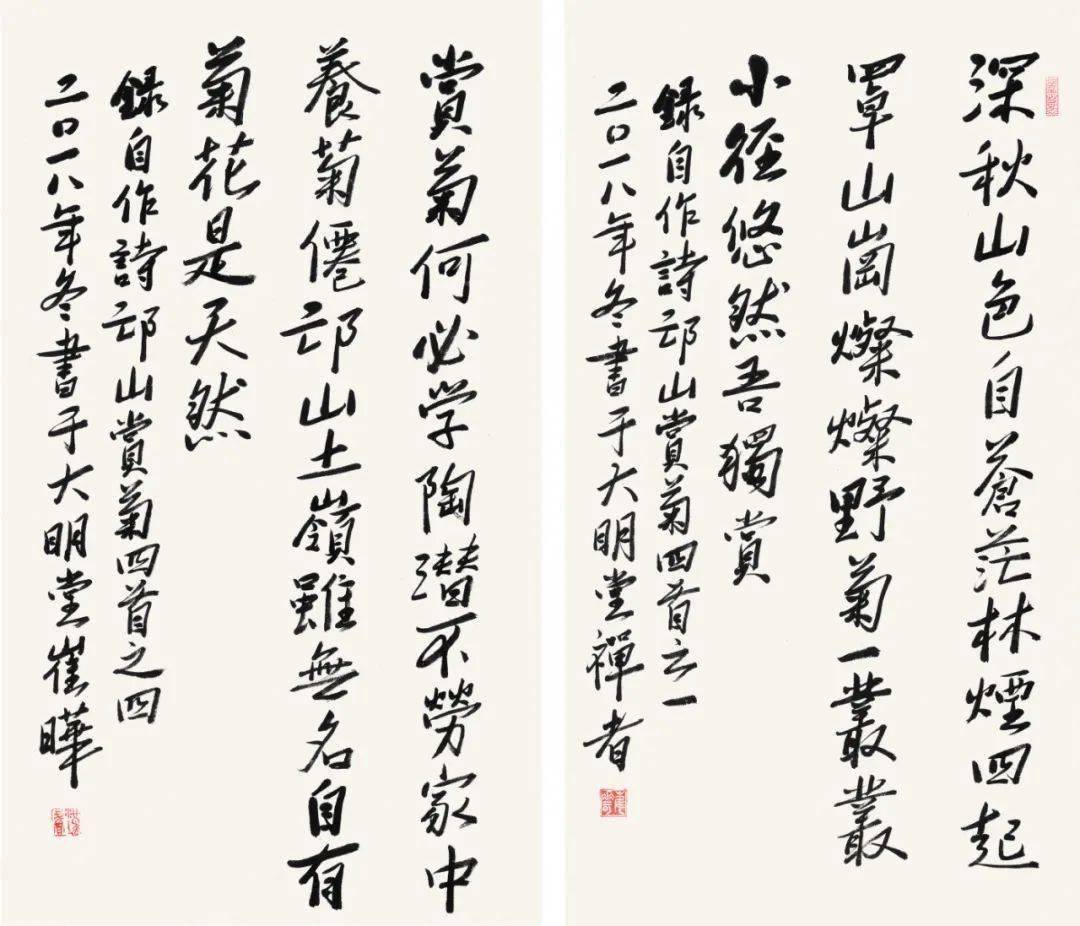 深秋山色自蒼茫林煙四起
罩山崗燦燦野菊一叢叢
小徑悠然吾獨賞
錄自作詩邙山賞菊四首之一
二〇一八年冬書于大明堂禪者
賞菊何必學陶潛不勞家中
養菊僊邙山土嶺雖無名自有
菊花是天然
錄自作詩邙山賞菊四首之四
二〇一八年冬書于大明堂崔曄